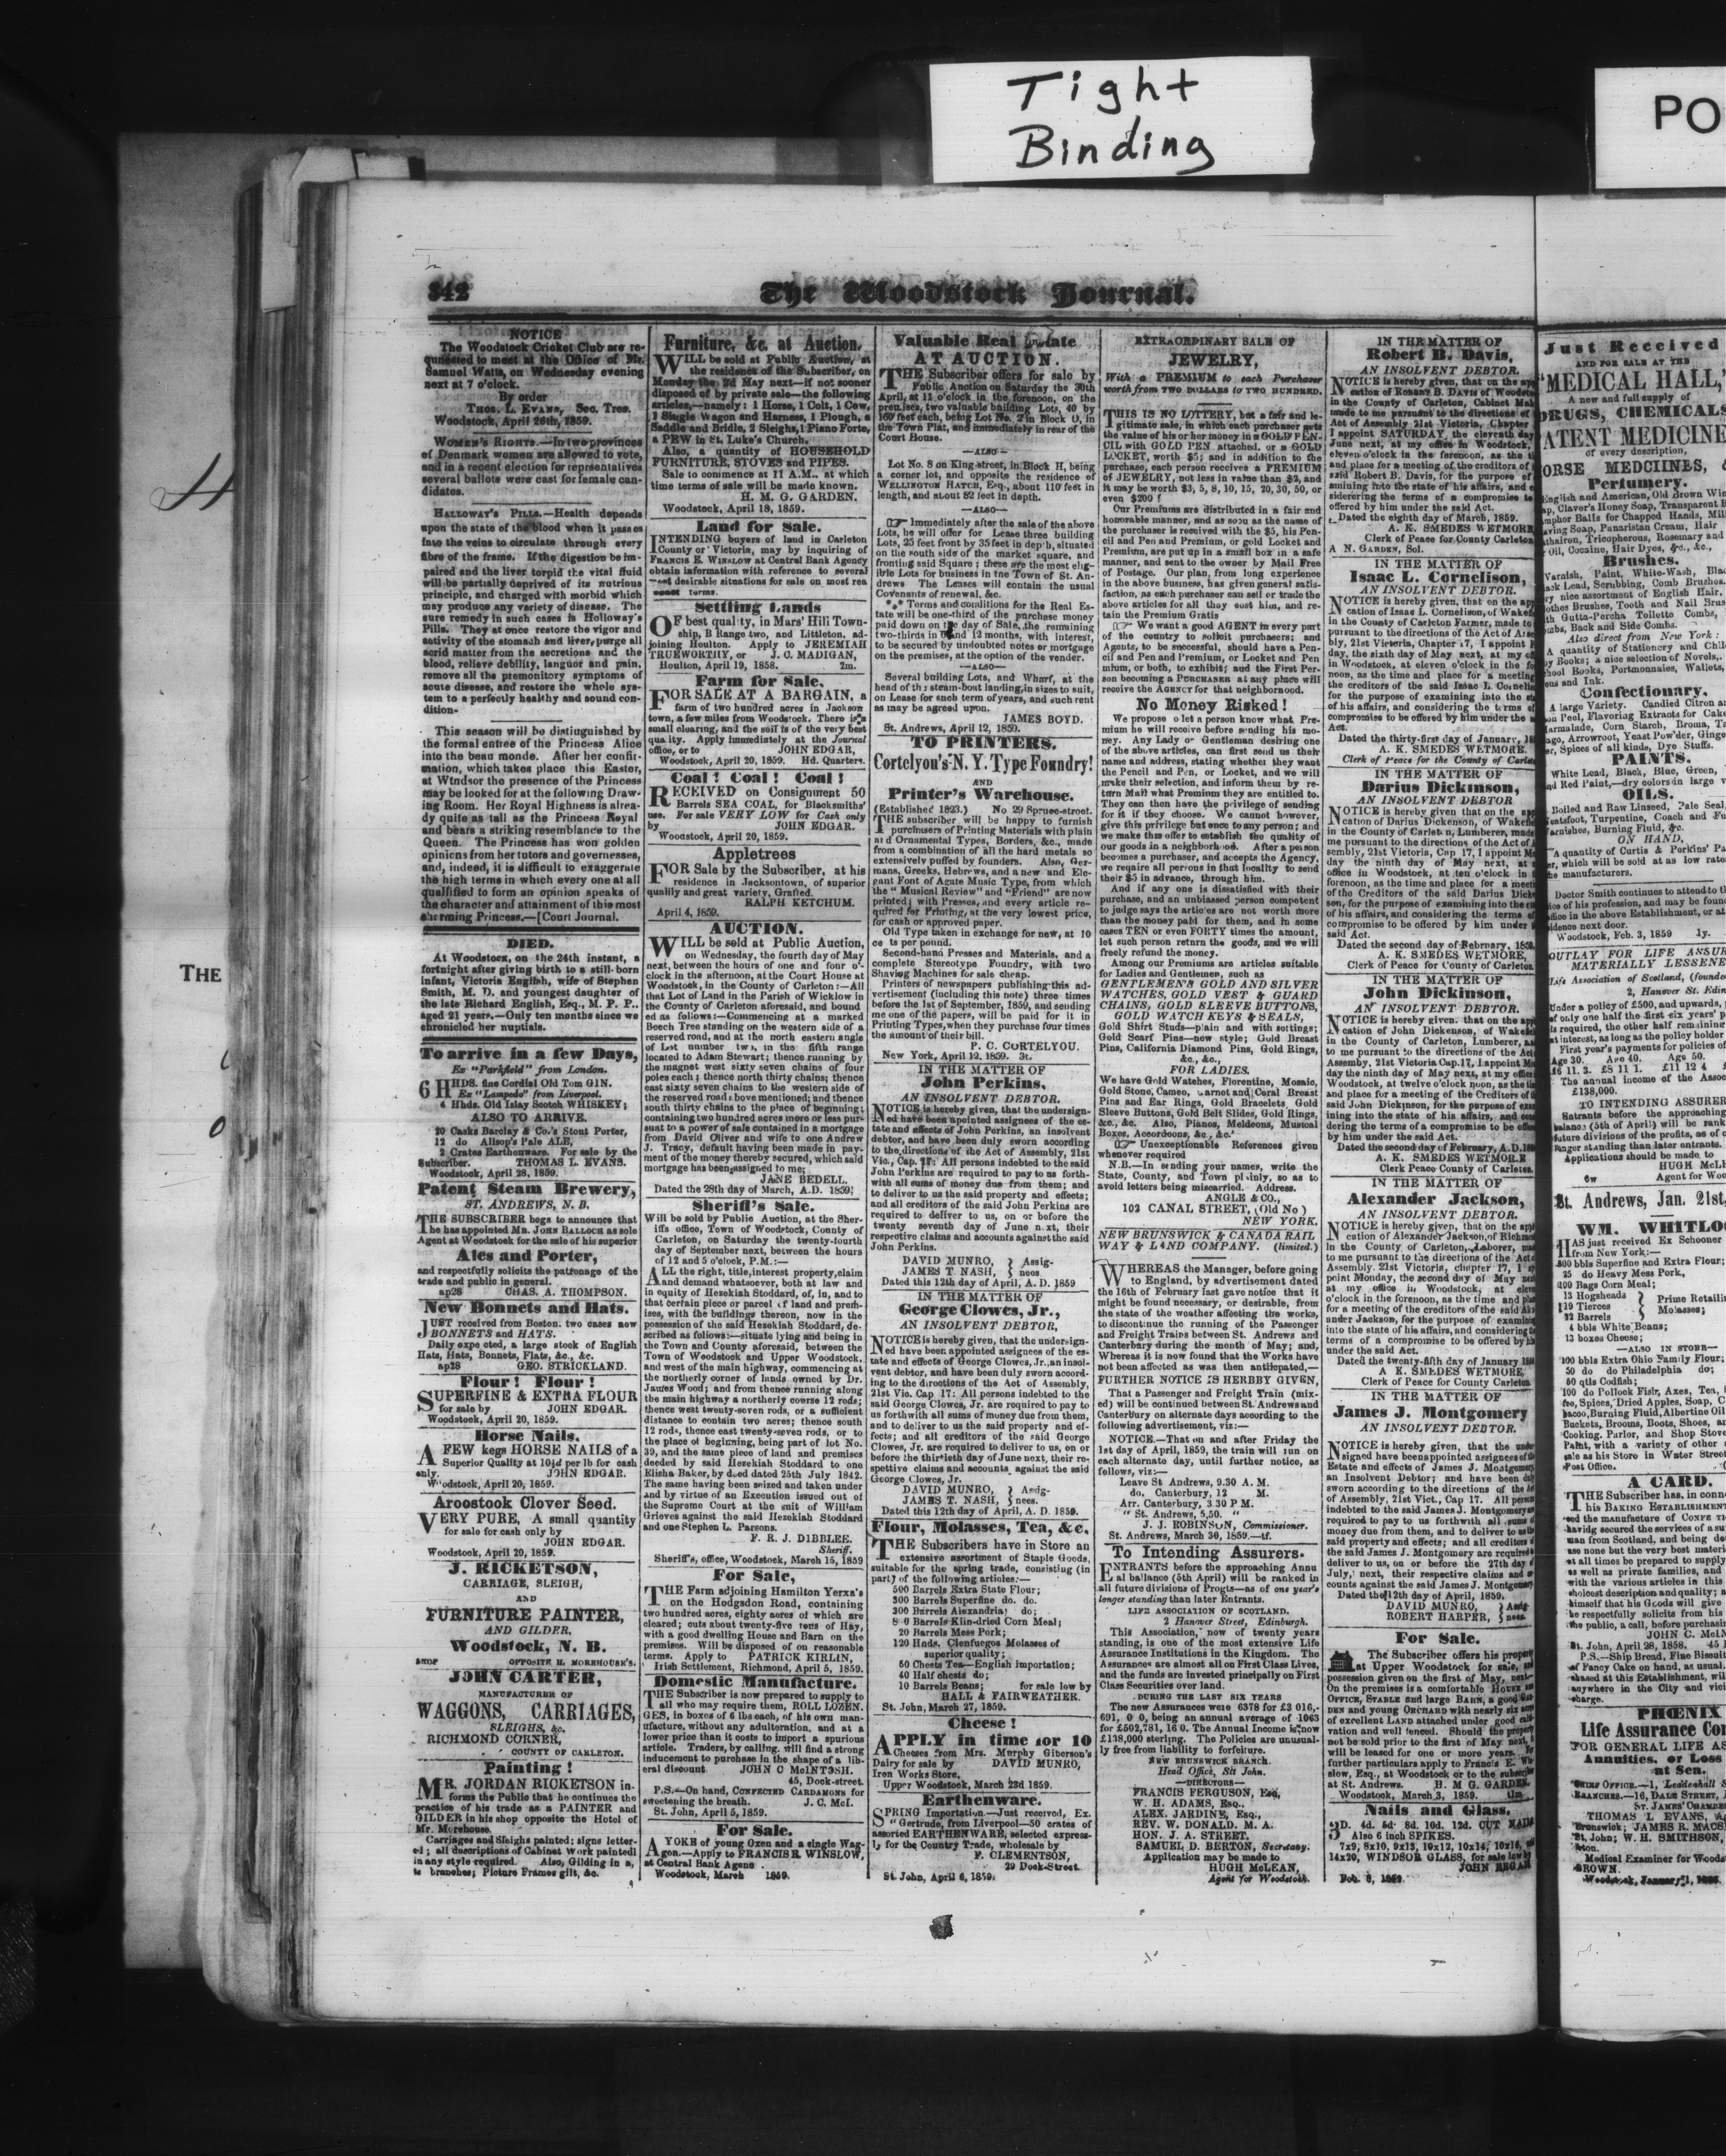 Tight
Binding
PO
THE
342
The Woodstock Journal.
NOTICE
The Woodstock Cricket Club are re-
qunested to meet at the Office of Mr.
Samuel Watts, on Wednesday evening
next at 7 o'clock.
By order
THOS. L. EVANS, Sec. Tres.
Woodstock, April 26th, 1859.
WOMEN'S RIGHTS.—In two provinces
of Denmark women are allowed to vote,
and in a recent election for representatives
several ballots were cast for female can-
didates.
HALLOWAY'S PILLS.—Health depends
upon the state of the blood when it passes
into the veins to circulate through every
fibre of the frame. If the digestion be im-
paired and the liver torpid the vital fluid
will be partially deprived of its nutrious
principle, and charged with morbid which
may produce any variety of disease. The
sure remedy in such cases is Holloway's
Pills. They at once restore the vigor and
activity of the stomach and liver, purge all
acrid matter from the secretions and the
blood, relieve debility, languor and pain,
remove all the premonitory symptoms of
acute disease, and restore the whole sys-
tem to a perfectly healthy and sound con-
dition.
This season will be distinguished by
the formal entree of the Princess Alice
into the beau monde. After her confir-
mation, which takes place this Easter,
at Windsor the presence of the Princess
may be looked for at the following Draw-
ing Room. Her Royal Highness is alrea-
dy quite as tall as the Princess Royal
and bears a striking resemblance to the
Queen. The Princess has won golden
opinions from her tutors and governesses,
and, indeed, it is difficult to exaggerate
the high terms in which every one at all
qualified to form an opinion speaks of
the character and attainment of this most
charming Princess.—[Court Journal.
DIED.
At Woodstock, on the 24th instant, a
fortnight after giving birth to a still-born
infant, Victoria English, wife of Stephen
Smith, M. D. and youngest daughter of
the late Richard English, Esq., M. P. P..
aged 21 years.—Only ten months since we
chronicled her nuptials.
To arrive in a few Days,
Ex "Parkfield" from London.
6 HHDS. fine Cordial Old Tom GIN.
Ex "Lampedo" from Liverpool.
4 Hhds. Old Islay Scotch WHISKEY;
ALSO TO ARRIVE.
20 Casks Barclay & Co.'s Stout Porter,
12 do Allsop's Pale ALE,
2 Crates Earthenware. For sale by the
Subscriber. THOMAS L. EVANS.
Woodstock, April 28, 1859.
Patent Steam Brewery,
ST. ANDREWS, N. B.
THE SUBSCRIBER begs to announce that
he has appointed MR. JOHN BALLOCH as sole
Agent at Woodstock for the sale of his superior
Ales and Porter,
and respectfully solicits the patronage of the
trade and public in general.
ap28 CHAS. A. THOMPSON.
New Bonnets and Hats.
JUST received from Boston. two cases new
BONNETS and HATS.
Daily expected, a large stock of English
Hats, Hats, Bonnets, Flats, &c., &c.
ap28 GEO. STRICKLAND.
Flour! Flour!
SUPERFINE & EXTRA FLOUR
for sale by JOHN EDGAR.
Woodstock, April 20, 1859.
Horse Nails.
A FEW kegs HORSE NAILS of a
Superior Quality at 10½d per lb for cash
only. JOHN EDGAR.
Woodstock, April 20, 1859.
Aroostook Clover Seed.
VERY PURE, A small quantity
for sale for cash only by
JOHN EDGAR.
Woodstock, April 20, 1859.
J. RICKETSON,
CARRIAGE, SLEIGH,
AND
FURNITURE PAINTER,
AND GILDER,
Woodstock, N. B.
SHOP OPPOSITE H. MOREHOUSE'S.
JOHN CARTER,
MANUFACTURER OF
WAGGONS, CARRIAGES,
SLEIGHS, &c.
RICHMOND CORNER,
COUNTY OF CARLETON.
Painting!
MR. JORDAN RICKETSON in-
forms the Public that he continues the
practice of his trade as a PAINTER and
GILDER in his shop opposite the Hotel of
Mr. Morehouse.
Carriages and Sleighs painted; signs letter-
ed; all descriptions of Cabinet Work painted
in any style required. Also, Gilding in a,
branches; Picture Frames gilt, &c.
Furniture, &c. at Auction.
WILL be sold at Public Auction, at
the residence of the Subscriber, on
Monday the 2d May next—if not sooner
disposed of by private sale—the following
articles,—namely: 1 Horse, 1 Colt, 1 Cow,
1 Single Wagon and Harness, 1 Plough, a
Saddle and Bridle, 2 Sleighs, 1 Piano Forte,
a PEW in St. Luke's Church.
Also, a quantity of HOUSEHOLD
FURNITURE, STOVES and PIPES.
Sale to commence at 11 A.M.. at which
time terms of sale will be made known.
H. M. G. GARDEN.
Woodstock, April 18, 1859.
Land for Sale.
INTENDING buyers of land in Carleton
County or Victoria, may by inquiring of
FRANCIS E. WINSLOW at Central Bank Agency
obtain information with reference to several
most desirable situations for sale on most rea
terms.
Settling Lands
OF best quality, in Mars' Hill Town-
ship, B Range two, and Littleton, ad-
joining Houlton. Apply to JEREMIAH
TRUEWORTHY, or J. C. MADIGAN,
Houlton, April 19, 1858. 2m.
Farm for Sale.
FOR SALE AT A BARGAIN, a
farm of two hundred acres in Jackson
town, a few miles from Woodstock. There is a
small clearing, and the soil is of the very best
quality. Apply immediately at the Journal
office, or to JOHN EDGAR,
Woodstock, April 20, 1859. Hd. Quarters.
Coal! Coal! Coal!
RECEIVED on Consignment 50
Barrels SEA COAL, for Blacksmiths'
use. For sale VERY LOW for Cash only
by JOHN EDGAR.
Woodstock, April 20, 1859.
Appletrees
FOR Sale by the Subscriber, at his
residence in Jacksontown, of superior
quality and great variety, Grafted.
RALPH KETCHUM.
April 4, 1859.
AUCTION.
WILL be sold at Public Auction,
on Wednesday, the fourth day of May
next, between the hours of one and four o'-
clock in the afternoon, at the Court House at
Woodstock, in the County of Carleton:—All
that Lot of Land in the Parish of Wicklow in
the County of Carleton aforesaid, and bound
ed as follows:—Commencing at a marked
Beech Tree standing on the western side of a
reserved road, and at the north eastern angle
of Lot number two, in the fifth range
located to Adam Stewart; thence running by
the magnet west sixty seven chains of four
poles each; thence north thirty chains; thence
east sixty seven chains to the western side of
the reserved road above mentioned; and thence
south thirty chains to the place of beginning;
containing two hundred acres more or less pur
suant to a power of sale contained in a mortgage
from David Oliver and wife to one Andrew
J. Tracy, default having been made in pay-
ment of the money thereby secured, which said
mortgage has been assigned to me;
JANE BEDELL.
Dated the 28th day of March, A.D. 1859.
Sheriff's Sale.
Will be sold by Public Auction, at the Sher-
iffs office, Town of Woodstock, County of
Carleton, on Saturday the twenty-fourth
day of September next, between the hours
of 12 and 5 o'clock, P.M.:—
ALL the right, title, interest property, claim
and demand whatsoever, both at law and
in equity of Hezekiah Stoddard, of, in, and to
that certain piece or parcel of land and prem-
ises, with the buildings thereon, now in the
possession of the said Hezekiah Stoddard, de-
scribed as follows:—situate lying and being in
the Town and County aforesaid, between the
Town of Woodstock and Upper Woodstock,
and west of the main highway, commencing at
the northerly corner of lands owned by Dr.
James Wood; and from thence running along
the main highway a northerly course 12 rods;
thence west twenty-seven rods, or a sufficient
distance to contain two acres; thence south
12 rods, thence east twenty-seven rods, or to
the place of beginning, being part of lot No.
39, and the same piece of land and premises
deeded by said Hezekiah Stoddard to one
Elisha Baker, by deed dated 25th July 1842.
The same having been seized and taken under
and by virtue of an Execution issued out of
the Supreme Court at the suit of William
Grieves against the said Hezekiah Stoddard
and one Stephen L. Parsons.
F. R. J. DIBBLEE.
Sheriff.
Sheriff's, office, Woodstock, March 15, 1859
For Sale,
THE Farm adjoining Hamilton Yerxa's
on the Hodgsdon Road, containing
two hundred acres, eighty acres of which are
cleared; cuts about twenty-five tons of Hay,
with a good dwelling House and Barn on the
premises. Will be disposed of on reasonable
terms. Apply to PATRICK KIRLIN,
Irish Settlement, Richmond, April 5, 1859.
Domestic Manufacture.
THE Subscriber is now prepared to supply to
all who may require them, ROLL LOZEN.
GES, in boxes of 6 lbs each, of his own man-
ufacture, without any adulteration, and at a
lower price than it costs to import a spurious
article. Traders, by calling. will find a strong
inducement to purchase in the shape of a lib-
eral discount. JOHN C McINTOSH.
45, Dock-street.
P.S.—On hand, CONFECTED CARDAMONS for
sweetening the breath. J. C. McI.
St. John, April 5, 1859.
For Sale.
A YOKE of young Oxen and a single Wag-
gon.—Apply to FRANCIS E. WINSLOW,
at Central Bank Agence.
Woodstock, March 1859.
Valuable Real Estate
AT AUCTION.
THE Subscriber offers for sale by
Public Auction on Saturday the 30th
April, at 11 o'clock in the forenoon, on the
premises, two valuable building Lots, 40 by
160 feet each, being Lot No. 2 in Block O, in
the Town Plat, and immediately in rear of the
Court House.
—ALSO—
Lot No. 8 on King-street, in Block H, being
a corner lot, and opposite the residence of
WELLINGTON HATCH, Esq., about 110 feet in
length, and about 82 feet in depth.
—ALSO—
☞ Immediately after the sale of the above
Lots, he will offer for Lease three building
Lots, 25 feet front by 35 feet in depth, situated
on the south side of the market square, and
fronting said Square; these are the most elig-
ible Lots for business in the Town of St. An-
drews The Leases will contain the usual
Covenants of renewal, &c.
*** Terms and conditions for the Real Es-
tate will be one-third of the purchase money
paid down on the day of Sale, the remaining
two-thirds in 6 and 12 months, with interest,
to be secured by undoubted notes or mortgage
on the premises, at the option of the vender.
—ALSO—
Several building Lots, and Wharf, at the
head of the steam-boat landing, in sizes to suit,
on Lease for such term of years, and such rent
as may be agreed upon.
JAMES BOYD.
St. Andrews, April 12, 1859.
TO PRINTERS.
Cortelyou's N. Y. Type Foundry!
AND
Printer's Warehouse.
(Established 1823.) No 29 Spruce-street.
THE subscriber will be happy to furnish
purchasers of Printing Materials with plain
and Ornamental Types, Borders, &c., made
from a combination of all the hard metals so
extensively puffed by founders. Also, Ger-
mans, Greeks, Hebrews, and a new and Ele-
gant Font of Agate Music Type, from which
the "Musical Review" and "Friend" are now
printed; with Presses, and every article re-
quired for Printing, at the very lowest price,
for cash or approved paper.
Old Type taken in exchange for new, at 10
cents per pound.
Second-hand Presses and Materials, and a
complete Stereotype Foundry, with two
Shaving Machines for sale cheap.
Printers of newspapers publishing this ad-
vertisement (including this note) three times
before the 1st of September, 1859, and sending
me one of the papers, will be paid for it in
Printing Types, when they purchase four times
the amount of their bill.
P. C. CORTELYOU.
New York, April 12, 1859. 3t.
IN THE MATTER OF
John Perkins,
AN INSOLVENT DEBTOR.
NOTICE is hereby given, that the undersign-
ed have been apointed assignees of the es-
tate and effects of John Perkins, an insolvent
debtor, and have been duly sworn according
to the directions of the Act of Assembly, 21st
Vic., Cap. 17: All persons indebted to the said
John Perkins are required to pay to us forth-
with all sums of money due from them; and
to deliver to us the said property and effects;
and all creditors of the said John Perkins are
required to deliver to us, on or before the
twenty seventh day of June next, their
respective claims and accounts against the said
John Perkins.
DAVID MUNRO, } Assig-
JAMES T. NASH, } nees
Dated this 12th day of April, A. D. 1859
IN THE MATTER OF
George Clowes, Jr.,
AN INSOLVENT DEBTOR,
NOTICE is hereby given, that the undersign-
ed have been appointed assignees of the es-
tate and effects of George Clowes, Jr., an insol-
vent debtor, and have been duly sworn accord-
ing to the directions of the Act of Assembly,
21st Vic. Cap 17: All persons indebted to the
said George Clowes, Jr. are required to pay to
us forthwith all sums of money due from them,
and to deliver to us the said property and ef-
fects; and all creditors of the said George
Clowes, Jr. are required to deliver to us, on or
before the thirtieth day of June next, their re-
spective claims and accounts against the said
George Clowes, Jr.
DAVID MUNRO, } Assig-
JAMES T. NASH, } nees.
Dated this 12th day of April, A. D. 1859.
Flour, Molasses, Tea, &c.
THE Subscribers have in Store an
extensive assortment of Staple Goods,
suitable for the spring trade, consisting (in
part) of the following articles:—
500 Barrels Extra State Flour;
300 Barrels Superfine do. do.
300 Barrels Alexandria do;
Barrels Kiln-dried Corn Meal;
20 Barrels Mess Pork;
120 Hhds. Cienfuegos Molasses of
superior quality;
50 Chests Tea—English importation;
40 Half chests do;
10 Barrels Beans; for sale low by
HALL & FAIRWEATHER.
St. John, March 27, 1859.
Cheese!
APPLY in time for 10
Cheeses from Mrs. Murphy Giberson's
Dairy for sale by DAVID MUNRO,
Iron Works Store.
Upper Woodstock, March 23d 1859.
Earthenware.
SPRING Importation.—Just received, Ex.
"Gertrude, from Liverpool—50 crates of
assorted EARTHENWARE, selected express-
ly for the Country Trade, wholesale by
F. CLEMENTSON,
29 Dock-Street.
St. John, April 6, 1859.
EXTRAORDINARY SALE OF
JEWELRY,
With a PREMIUM to each Purchaser
worth from TWO DOLLARS to TWO HUNDRED.
THIS IS NO LOTTERY, but a fair and le-
gitimate sale, in which each purchaser gets
the value of his or her money in a GOLD PEN-
CIL with GOLD PEN attached, or a GOLD
LOCKET, worth $5; and in addition to the
purchase, each person receives a PREMIUM
of JEWELRY, not less in value than $2, and
it may be worth $3, 5, 8, 10, 15, 20, 30, 50, or
even $200!
Our Premiums are distributed in a fair and
honorable manner, and as soon as the name of
the purchaser is received with the $5, his Pen-
cil and Pen and Premium, or gold Locket and
Premium, are put up in a small box in a safe
manner, and sent to the owner by Mail Free
of Postage. Our plan, from long experience
in the above business, has given general satis-
faction, as each purchaser can sell or trade the
above articles for all they cost him, and re-
tain the Premium Gratis
☞ We want a good AGENT in every part
of the country to solicit purchasers; and
Agents, to be successful, should have a Pen-
cil and Pen and Premium, or Locket and Pen
mium, or both, to exhibit; and the First Per-
son becoming a PURCHASER at any place will
receive the AGENCY for that neighborhood.
No Money Risked!
We propose to let a person know what Pre-
mium he will receive before sending his mo-
ney. Any Lady or Gentleman desiring one
of the above articles, can first send us their
name and address, stating whether they want
the Pencil and Pen, or Locket, and we will
make their selection, and inform them by re-
turn Mail what Premium they are entitled to.
They can then have the privilege of sending
for it if they choose. We cannot however,
give this privilege but once to any person; and
we make this offer to establish the quality of
our goods in a neighborhood. After a person
becomes a purchaser, and accepts the Agency,
we require all persons in that locality to send
their $5 in advance, through him.
And if any one is dissatisfied with their
purchase, and an unbiassed person competent
to judge says the articles are not worth more
than the money paid for them, and in some
cases TEN or even FORTY times the amount,
let such person return the goods, and we will
freely refund the money.
Among our Premiums are articles suitable
for Ladies and Gentlemen, such as
GENTLEMEN'S GOLD AND SILVER
WATCHES, GOLD VEST & GUARD
CHAINS, GOLD SLEEVE BUTTONS,
GOLD WATCH KEYS & SEALS,
Gold Shirt Studs—plain and with settings;
Gold Scarf Pins—new style; Gold Breast
Pins, California Diamond Pins, Gold Rings,
&c., &c.
FOR LADIES.
We have Gold Watches, Florentine, Mosaic,
Gold Stone, Cameo, Garnet and Coral Breast
Pins and Ear Rings, Gold Bracelets, Gold
Sleeve Buttons, Gold Belt Slides, Gold Rings,
&c., &c. Also, Pianos, Meldeons, Musical
Boxes, Accordeons, &c., &c.
☞ Unexceptionable References given
whenever required
N.B.—In sending your names, write the
State, County, and Town plainly, so as to
avoid letters being miscarried. Address.
ANGLE & CO.,
102 CANAL STREET, (Old No )
NEW YORK.
NEW BRUNSWICK & CANADA RAIL
WAY & LAND COMPANY. (limited.)
WHEREAS the Manager, before going
to England, by advertisement dated
the 16th of February last gave notice that it
might be found necessary, or desirable, from
the state of the weather affecting the works,
to discontinue the running of the Passenger
and Freight Trains between St. Andrews and
Canterbury during the month of May; and,
Whereas it is now found that the Works have
not been affected as was then anticipated,—
FURTHER NOTICE IS HEREBY GIVEN,
That a Passenger and Freight Train (mix-
ed) will be continued between St. Andrews and
Canterbury on alternate days according to the
following advertisement, viz:—
NOTICE.—That on and after Friday the
1st day of April, 1859, the train will run on
each alternate day, until further notice, as
follows, viz:—
Leave St Andrews, 9.30 A. M.
do, Canterbury, 12 M.
Arr. Canterbury, 3 30 P M.
" St. Andrews, 5,50. "
J. J. ROBINSON, Commissioner.
St. Andrews, March 30, 1859.—tf.
To Intending Assurers.
ENTRANTS before the approaching Annu
al ballance (5th April) will be ranked in
all future divisions of Progts—as of one year's
longer standing than later Entrants.
LIFE ASSOCIATION OF SCOTLAND.
2 Hanover Street, Edinburgh.
This Association, now of twenty years
standing, is one of the most extensive Life
Assurance Institutions in the Kingdom. The
Assurances are almost all on First Class Lives,
and the funds are invested principally on First
Class Securities over land.
DURING THE LAST SIX YEARS
The new Assurances were 6378 for £3 016,-
691, 0 0, being an annual average of 1063
for £502,781, 16 0. The Annual Income is now
£138,000 sterling. The Policies are unusual-
ly free from liability to forfeiture.
NEW BRUNSWICK BRANCH.
Head Office, Sit John.
—DIRECTORS—
FRANCIS FERGUSON, Esq,
W. H. ADAMS, Esq.,
ALEX. JARDINE, Esq.,
REV. W. DONALD. M. A.
HON. J. A. STREET.
SAMUEL D. BERTON, Secretary.
Application may be made to
HUGH McLEAN,
Agent for Woodstock.
IN THE MATTER OF
Robert B. Davis,
AN INSOLVENT DEBTOR.
NOTICE is hereby given, that on the app
cation of Robert B. Davis of Woodsto
in the County of Carleton, Cabinet Mak
made to me pursuant to the directions of
Act of Assembly 21st Victoria, Chapter
I appoint SATURDAY, the eleventh day
June next, at my office in Woodstock,
eleven o'clock in the forenoon, as the
and place for a meeting of the creditors of
said Robert B. Davis, for the purpose of
amining into the state of his affairs, and
sidererring the terms of a compromise to
offered by him under the said Act.
Dated the eighth day of March, 1859.
A. K. SMEDES WETMORE
Clerk of Peace for County Carleton
A N. GARDEN, Sol.
IN THE MATTER OF
Isaac L. Cornelison,
AN INSOLVENT DEBTOR.
NOTICE is hereby given, that on the app
cation of Isaac L. Cornelison, of Wakef
in the County of Carleton Farmer, made to
pursuant to the directions of the Act of Asse
bly, 21st Victoria, Chapter 17, I appoint
day, the sixth day of May next, at my of
in Woodstock, at eleven o'clock in the fo
noon, as the time and place for a meeting
the creditors of the said Isaac L. Cornelis
for the purpose of examining into the st
of his affairs, and considering the terms of
compromise to be offered by him under the
Act.
Dated the thirty-first day of January, 18
A. K. SMEDES WETMORE.
Clerk of Peace for the County of Carlet
IN THE MATTER OF
Darius Dickinson,
AN INSOLVENT DEBTOR
NOTICE is hereby given, that on the app
cation of Darius Dickenson, of Wakefie
in the County of Carleton, Lumberer, made
me pursuant to the directions of the Act of
sembly, 21st Victoria, Cap 17, I appoint M
day the ninth day of May next, at
office in Woodstock, at ten o'clock in t
forenoon, as the time and place for a meeti
of the Creditors of the said Darius Dicke
son, for the purpose of examining into the
of his affairs, and considering the terms of
compromise to be offered by him under
said Act.
Dated the second day of February, 1859.
A. K. SMEDES WETMORE,
Clerk of Peace for County of Carleton
IN THE MATTER OF
John Dickinson,
AN INSOLVENT DEBTOR.
NOTICE is hereby given. that on the app
cation of John Dickenson, of Wakefie
in the County of Carleton, Lumberer,
to me pursuant to the directions of the Act
Assembly, 21st Victoria Cap.17, I appoint M
day the ninth day of May next, at my office
Woodstock, at twelve o'clock noon, as the ti
and place for a meeting of the Creditors of
said John Dickinson, for the purpose of exa
ining into the state of his affairs, and
dering the terms of a compromise to be offe
by him under the said Act.
Dated the second day of February, A.D. 18
A. K. SMEDES WETMORE
Clerk Peace County of Carleton.
IN THE MATTER OF
Alexander Jackson,
AN INSOLVENT DEBTOR.
NOTICE is hereby given, that on the appl
cation of Alexander Jackson, of Richm
in the County of Carleton, Laborer,
to me pursuant to the directions of the Act
Assembly. 21st Victoria, chapter 17, I
point Monday, the second day of May
at my office in Woodstock, at eleve
o'clock in the forenoon, as the time and pla
for a meeting of the creditors of the said Al
ander Jackson, for the purpose of examini
into the state of his affairs, and considering
terms of a compromise to be offered by him
under the said Act.
Dated the twenty-fifth day of January
A K. SMEDES WETMORE
Clerk of Peace for County of Carleton
IN THE MATTER OF
James J. Montgomery
AN INSOLVENT DEBTOR.
NOTICE is hereby given, that the under
signed have been appointed assignees of the
Estate and effects of James J. Montgomery
an Insolvent Debtor; and have been duly
sworn according to the directions of the Act
of Assembly, 21st Vict., Cap 17. All persons
indebted to the said James J. Montgomery
required to pay to us forthwith all sums of
money due from them, and to deliver to us
said property and effects; and all creditors of
the said James J. Montgomery are required
deliver to us, on or before the 27th day of
July, next, their respective claims and
counts against the said James J. Montgomery
Dated the 12th day of April, 1859.
DAVID MUNRO, } Assig-
ROBERT HARPER, } nees.
For Sale.
The Subscriber offers his property
at Upper Woodstock for sale, and
possession given on the first of May, next—
On the premises is a comfortable HOUSE
OFFICE, STABLE and large BARN, a good GAR-
DEN and young ORCHARD with nearly six acres
of excellent LAND attached under good culti
vation and well fenced. Should the property
not be sold prior to the first of May next,
will be leased for one or more years.
further particulars apply to Francis E. Win
slow, Esq., at Woodstock or to the subscriber
at St. Andrews. H. M G. GARDEN.
Woodstock, March 3, 1859. 6m
Nails and Glass.
3D. 4d. 5d. 8d. 10d. 12d. CUT NAILS
Also 6 inch SPIKES.
7x9, 8x10, 9x13, 10x12, 10x14, 10x16,
14x20, WINDSOR GLASS, for sale low by
JOHN EDGAR
Feb. 8, 1859.
Just Received
AND FOR SALE AT THE
"MEDICAL HALL,"
A new and full supply of
DRUGS, CHEMICALS
PATENT MEDICINE
of every description,
HORSE MEDCIINES, &
Perfumery.
English and American, Old Brown Win
ap, Claver's Honey Soap, Transparent
mphor Balls for Chapped Hands, Mil
aving Soap, Panaristan Cream, Hair
athairon, Tricopherous, Rosemary and
Oil, Cocaine, Hair Dyes, &c., &c.,
Brushes.
Varnish, Paint, White-Wash, Blac
ack Lead, Scrubbing, Comb Brushes.
ry nice assortment of English Hair,
lothes Brushes, Tooth and Nail Brus
ith Gutta-Percha Toilette Combs,
mbs, Back and Side Combs.
Also direct from New York:
A quantity of Stationery and Chil
oy Books; a nice selection of Novels,
hool Books, Portmonnaies, Wallets,
ens and Ink.
Confectionary.
A large Variety. Candied Citron an
on Peel, Flavoring Extracts for Cake
armalade, Corn Starch, Broma, Ta
ago, Arrowroot, Yeast Powder, Ginge
er, Spices of all kinds, Dye Stuffs.
PAINTS.
White Lead, Black, Blue, Green,
nd Red Paint,—dry colors in large v
OILS.
Boiled and Raw Linseed, Pale Seal,
eatsfoot, Turpentine, Coach and Fu
arnishes, Burning Fluid, &c.
ON HAND,
A quantity of Curtis & Perkins' Pa
er, which will be sold at as low rates
he manufacturers.
Doctor Smith continues to attend to th
ies of his profession, and may be found
office in the above Establishment, or at
idence next door.
Woodstock, Feb. 3, 1859 1y.
OUTLAY FOR LIFE ASSUR
MATERIALLY LESSENE
Life Association of Scotland, (founde
2, Hanover St. Edin
Under a policy of £500, and upwards,
of only one half the first six years' pr
is required, the other half remaining
at interest, as long as the policy holder
First year's payments for policies of
Age 30. Age 40. Age 50.
£6 11. 3. £8 11 1. £11 12 4
The annual income of the Assoc
£138,000.
TO INTENDING ASSURER
Entrants before the approaching
balance (5th of April) will be rank
future divisions of the profits, as of o
longer standing than later entrants.
Applications should be made to
HUGH McLE
6w Agent for Woo
St. Andrews, Jan. 21st,
WM. WHITLO
HAS just received Ex Schooner
from New York:—
300 bbls Superfine and Extra Flour;
25 do Heavy Mess Pork,
100 Bags Corn Meal;
13 Hogsheads
19 Tierces } Prime Retailin
12 Barrels Molasses;
4 bbls White Beans;
13 boxes Cheese;
—ALSO IN STORE—
100 bbls Extra Ohio Family Flour;
50 do do Philadelphia do;
50 qtls Codfish;
100 do Pollock Fish, Axes, Tea,
fee, Spices, Dried Apples, Soap, C
bacco, Burning Fluid, Albertine Oil
Buckets, Brooms, Boots, Shoes, a
Cooking, Parlor, and Shop Stove
Paint, with a variety of other
sale as his Store in Water Street
Post Office.
A CARD.
THE Subscriber has, in conne
his BAKING ESTABLISHMENT
sed the manufacture of CONFE TI
having secured the services of a su
man from Scotland, and being de
use none but the very best materi
at all times be prepared to supply
as well as private families, and
with the various articles in this
choicest description and quality; a
himself that his Goods will give
he respectfully solicits from his
the public, a call, before purchasin
JOHN C. McIN
St. John, April 28, 1858. 45
P.S.—Ship Bread, Fine Biscuit
of Fancy Cake on hand, as usual.
chased at this Establishment, wil
anywhere in the City and vici
charge.
PHŒNIX
Life Assurance Com
FOR GENERAL LIFE AS
Annuities, or Loss
at Sea.
CHIEF OFFICE.—1, Leadenhall S
BRANCHES.—16, DALE STREET,
ST. JAMES' CHAMBE
THOMAS L EVANS, A
Brunswick; JAMES R. MACS
St. John; W. H. SMITHSON,
ton.
Medical Examiner for Woods
BROWN.
Woodstock, January 1,